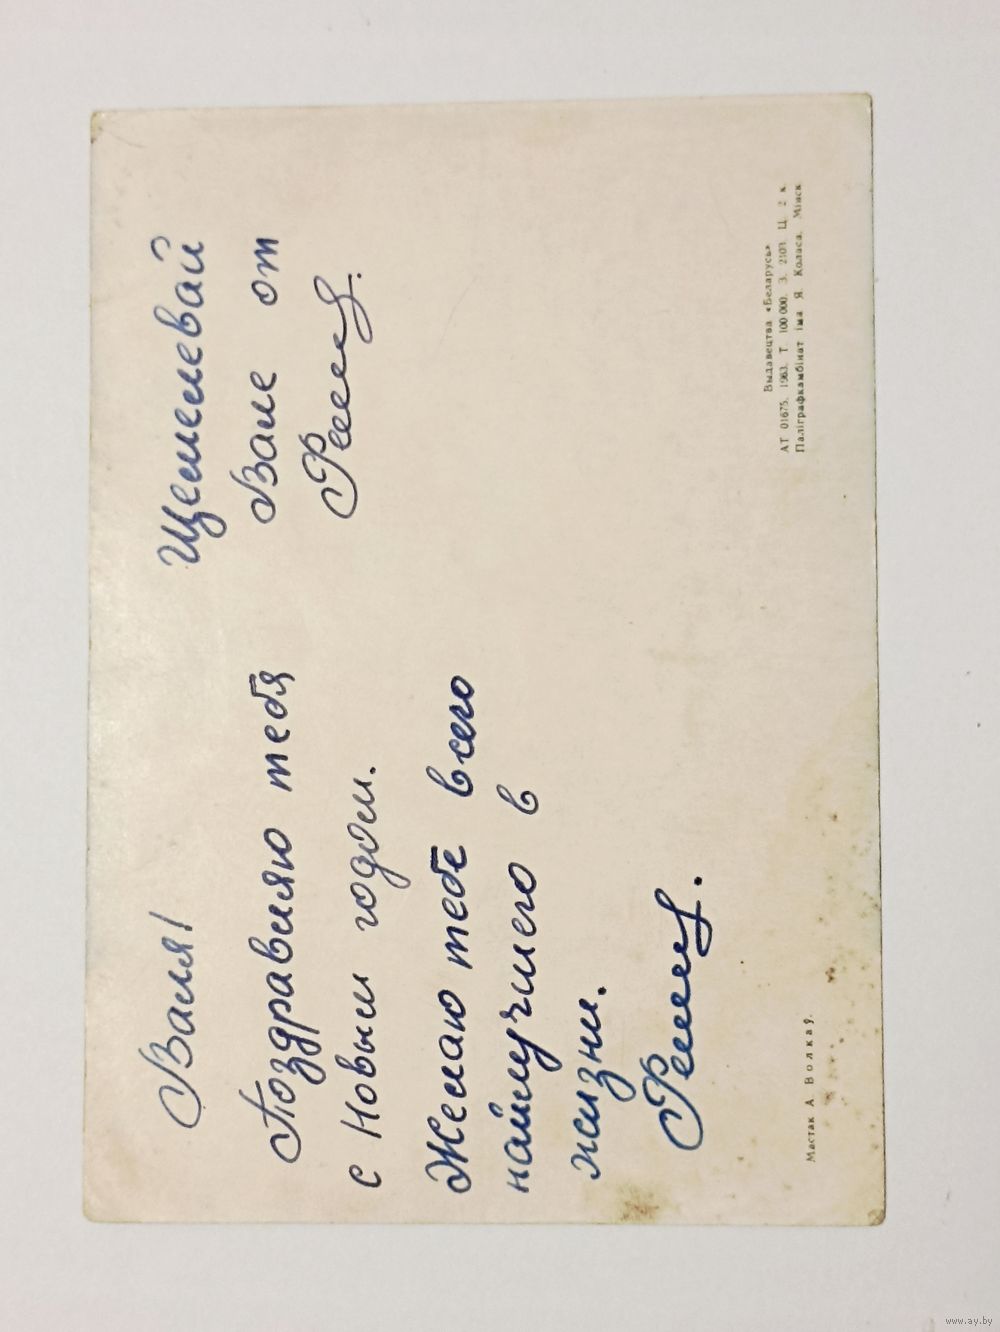 Валя!
Поздравляю тебя
с Новым годом.
Желаю тебе всего
наилучшего в
жизни.
Щемелевай
Вале от
Мастак А Волкаў.
Выдавецтва «Беларусь»
АТ 01675. 1963. Т. 100 000. З. 2103. Ц. 2 к.
Паліграфкамбінат імя Я. Коласа. Мінск.
www.ay.by